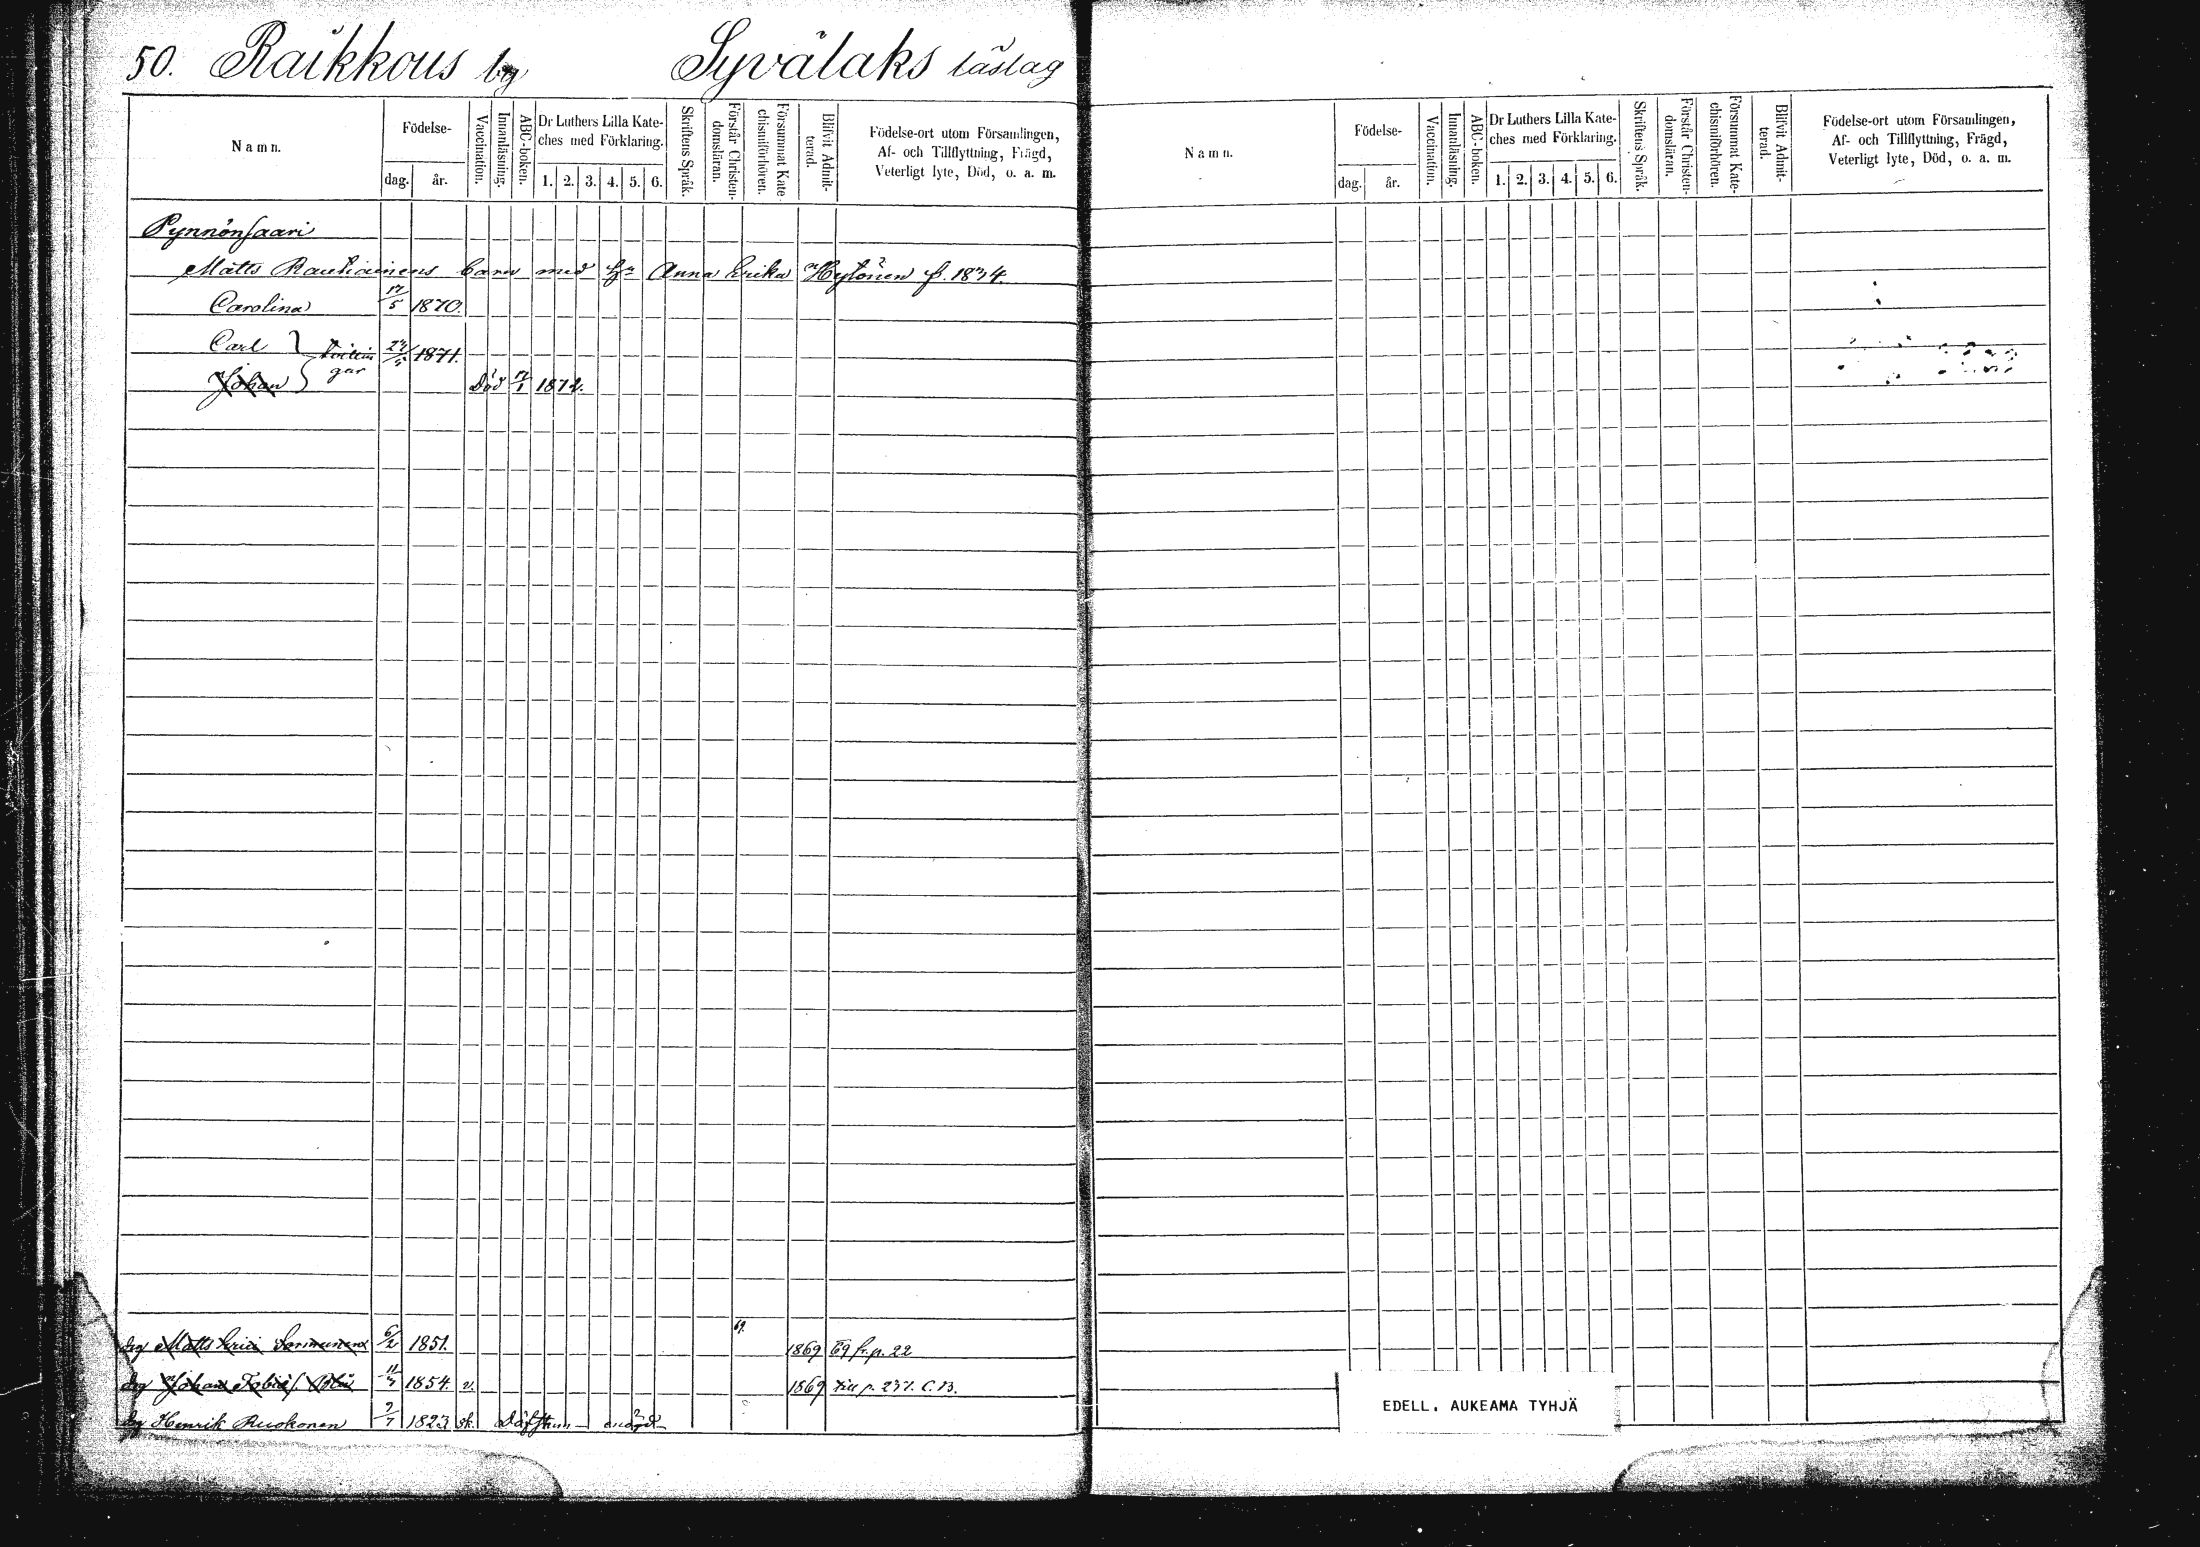 50. Raikkous by Syvälaks läslag
Namn. Födelse- dag. år. Vaccination. Innanläsning. ABC-boken. Dr Luthers Lilla Kateches med Förklaring. 1. 2. 3. 4. 5. 6. Skriftens Språk. Förstår Christendomsläran. Försummat Katechismiförhören. Blifvit Admitterad. Födelse-ort utom Församlingen, Af- och Tillflyttning, Frägd, Veterligt lyte, Död, o. a. m.
Pynnönsaari
Matts Rautiainens barn med Anna Erika Hytönen f. 1834.
Carolina 17/5 1870.
Carl } tvillin 1871.
Johan gar Död 17/1 1872.
Matts Erici Sormunen 6/2 1851. 69. 1869 69 fr. p. 22
Johan Tobias 1854. v. 1869 till p. 237. C.B.
Henrik Ruokonen 2/7 1823 sk. Döfstum
Namn. Födelse- dag. år. Vaccination. Innanläsning. ABC-boken. Dr Luthers Lilla Kateches med Förklaring. 1. 2. 3. 4. 5. 6. Skriftens Språk. Förstår Christendomsläran. Försummat Katechismiförhören. Blifvit Admitterad. Födelse-ort utom Församlingen, Af- och Tillflyttning, Frägd, Veterligt lyte, Död, o. a. m.
EDELL. AUKEAMA TYHJÄ